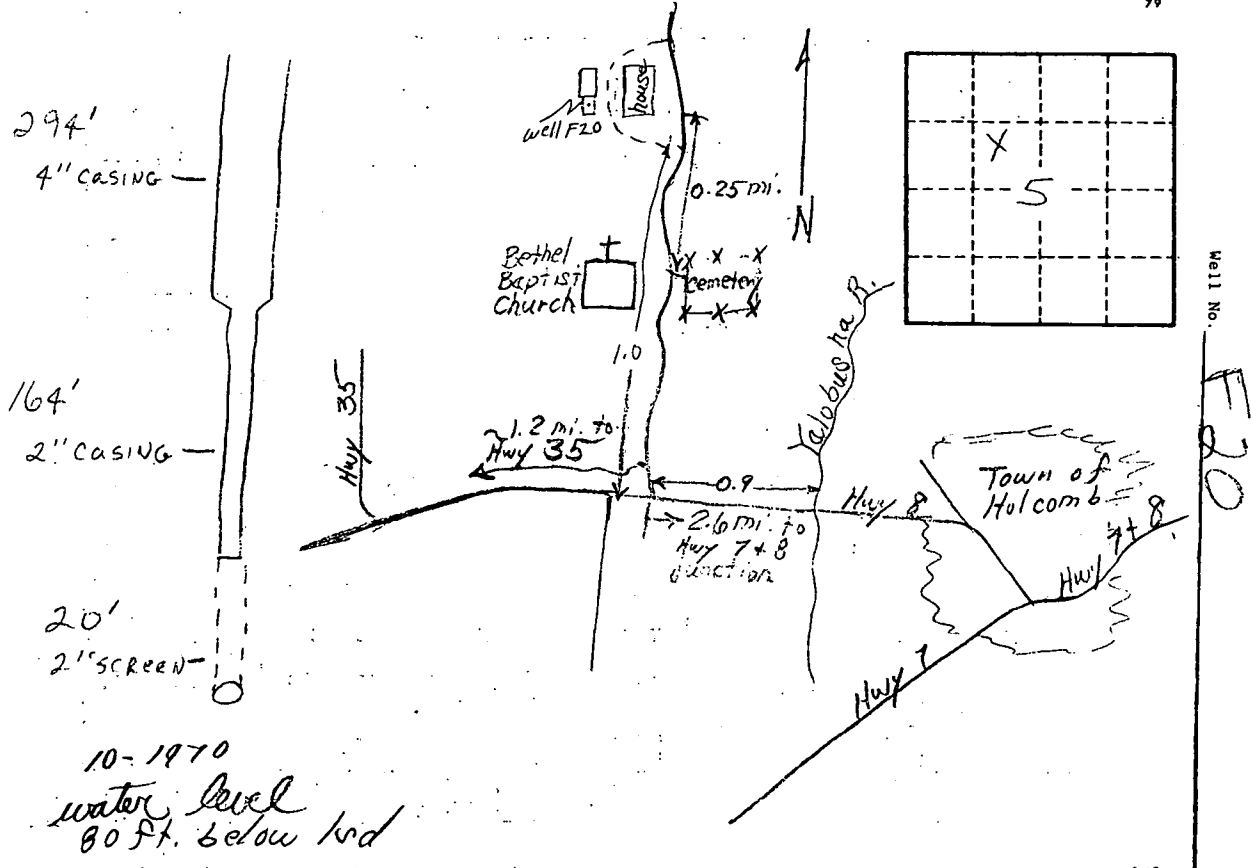 294'
4" CASING
164'
2" CASING
20'
2" SCREEN
10-1970
water level
80 ft. below lsd
well F20
house
0.25 mi.
N
Bethel
Baptist
Church
x x x
cemetery
x x x
1.0
Hwy 35
~1.2 mi. to
Hwy 35
0.9
2.6 mi. to
Hwy 7 + 8
junction
Yalobusha R.
Hwy 8
Town of
Holcomb
Hwy 7 + 8
Hwy 7
X
5
Well No.
F20